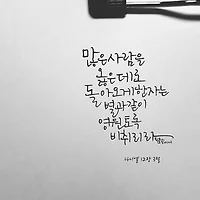 많은사람을
옳은데로
돌아오게한자는
별과같이
영원토록
비취리라
다니엘 12장 3절